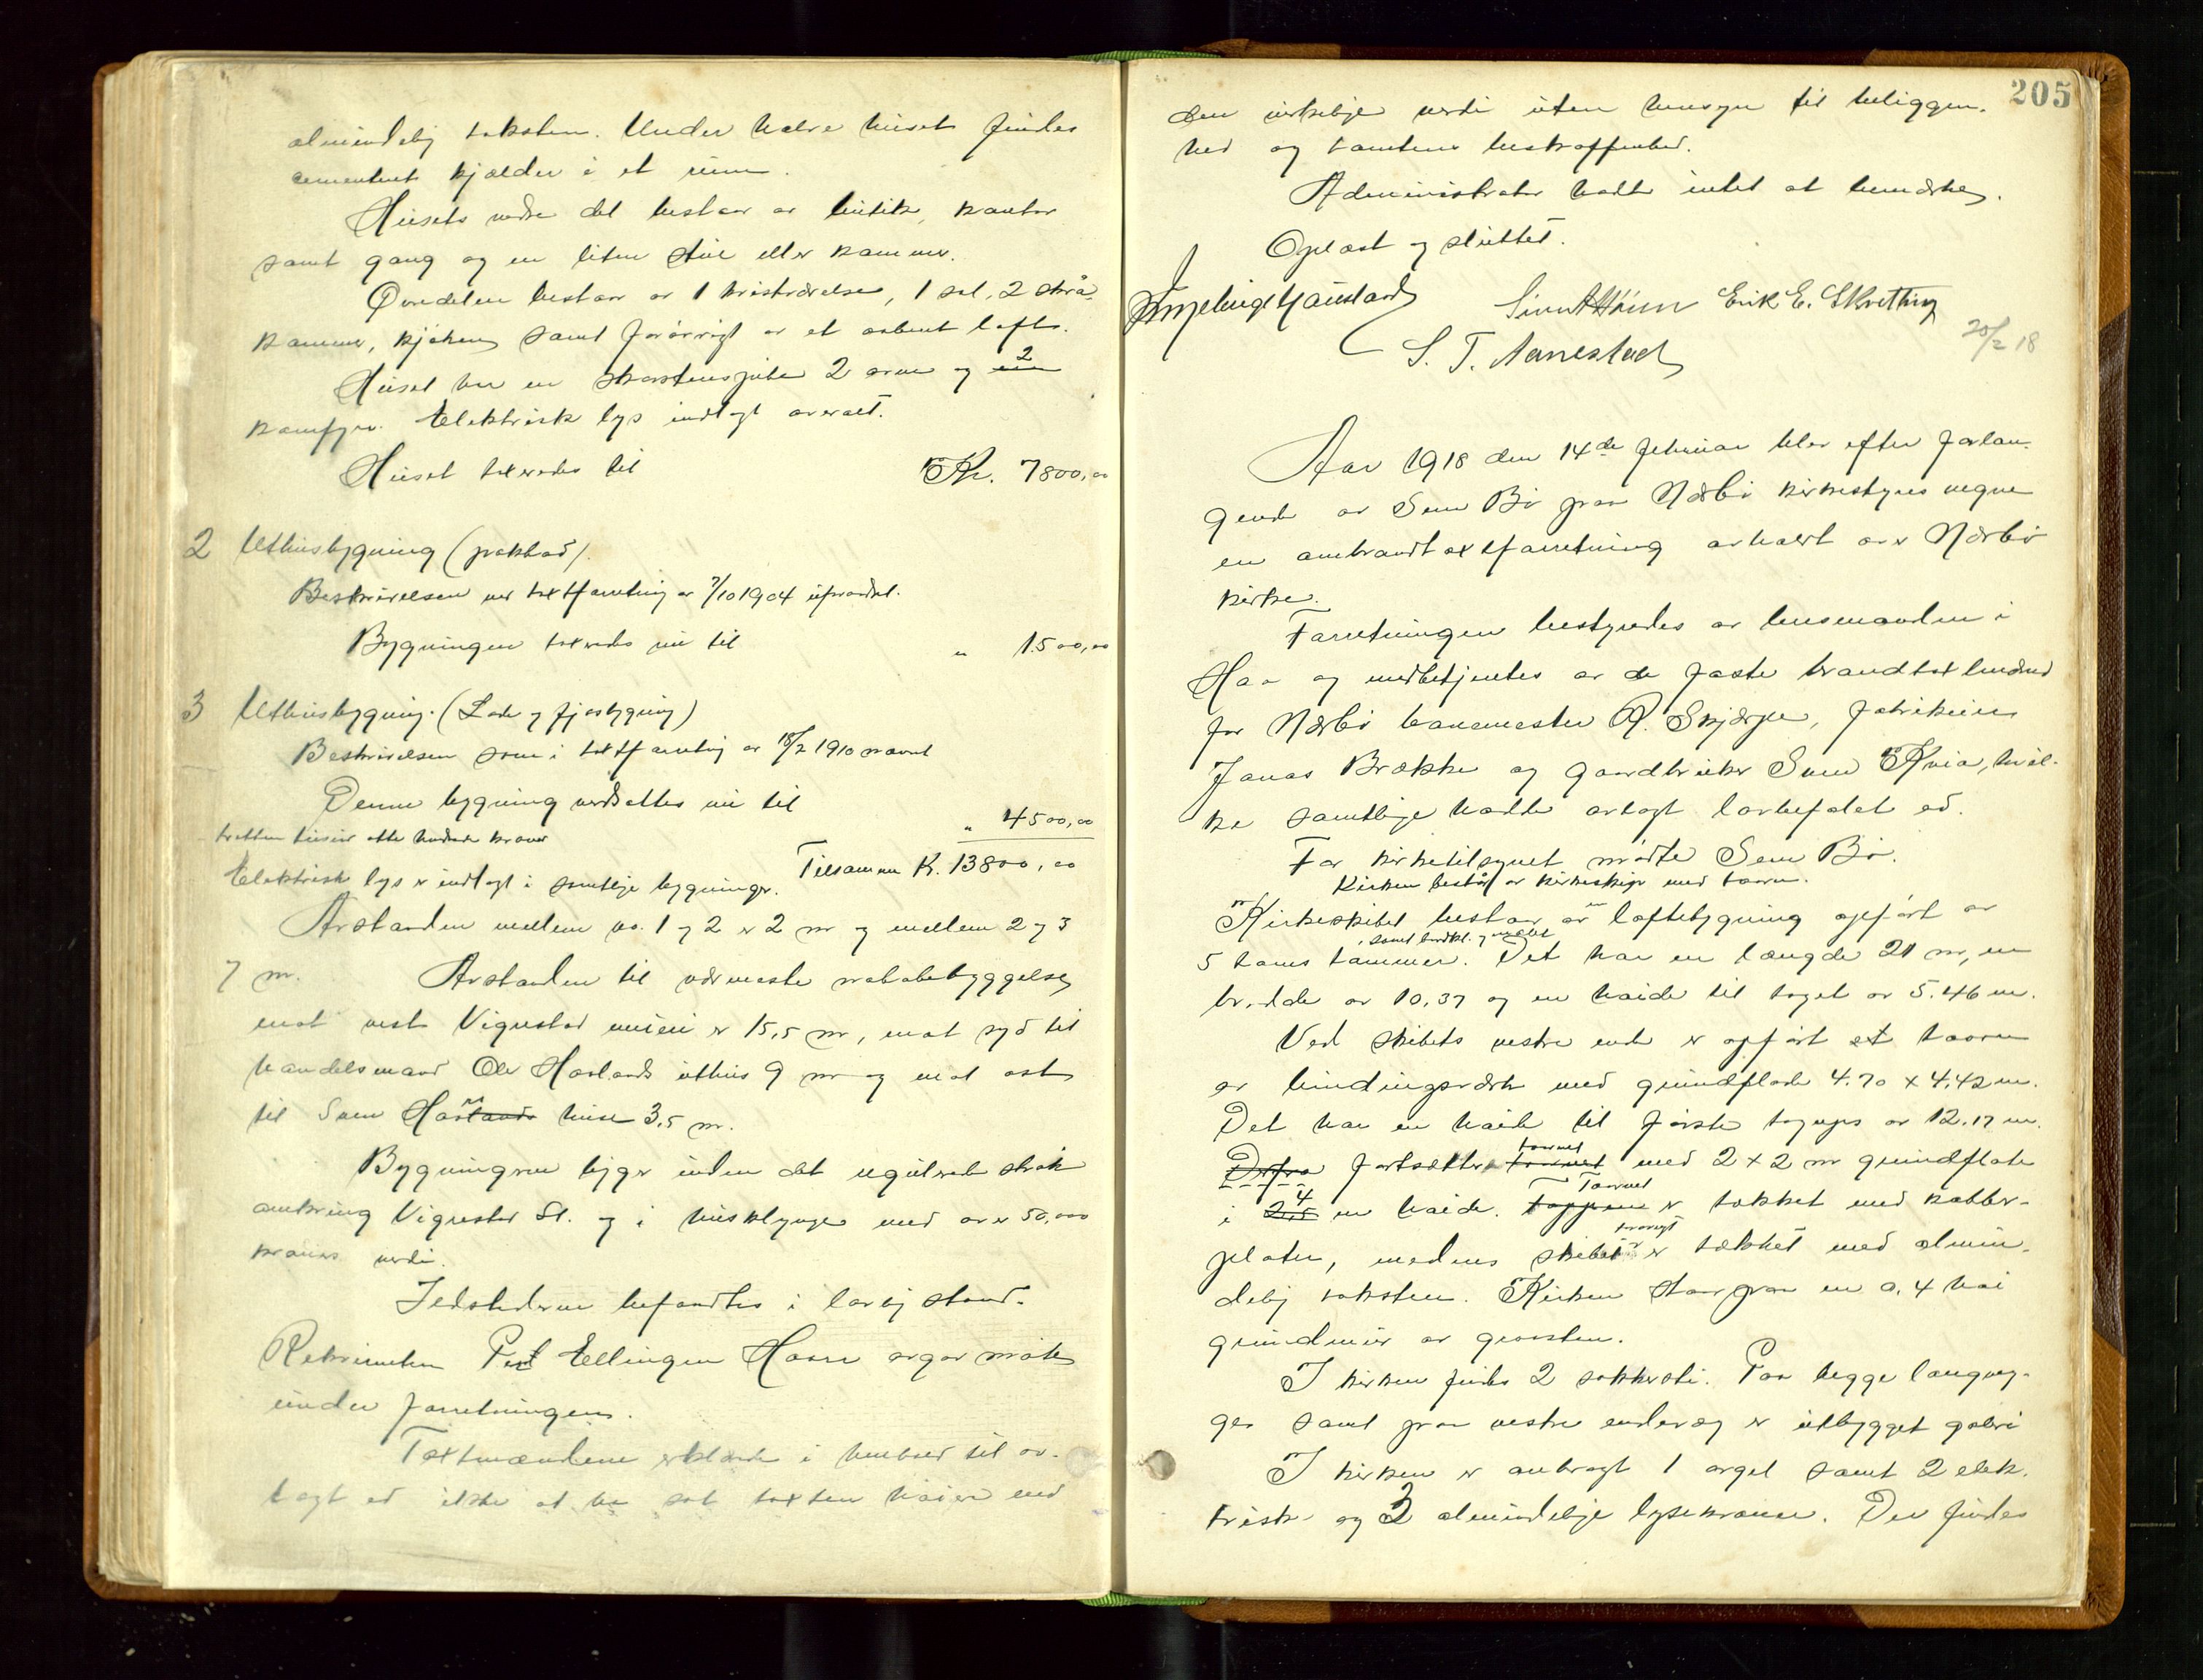 almindelig taksten. Under halve huset findes
cementert kjælder i et rum.
Husets nedre del bestaar av butik, kontor
samt gang og en liten stue eller kammer.
Øvredelen bestaar av 1 kvistværelse, 1 sal, 2 skrå-
kammer, kjøken samt forøvrigt av et aabent loft.
Huset har en skorstenspibe 2 ovne og 2
komfyr. Elektrisk lys indlagt overalt.
Huset taxeredes til Kr. 7800,00
2 Uthusbygning (pakbod).
Beskrivelsen ved taxtforretning av 7/10 1904 uforandret.
Bygningen taxeredes nu til " 1500,00
3 Uthusbygning. (Lade og fjøsbygning)
Beskrivelsen som i taxtforretning av 18/2 1910 nævnt
Denne bygning verdsættes nu til " 4500,00
tretten tusen otte hundrede kroner
Tilsammen K. 13800,00
Elektrisk lys er indlagt i samtlige bygninger.
Avstanden mellem no. 1 og 2 er 2 m og mellem 2 og 3
7 m. Avstanden til nærmeste nabobebyggelse
mot vest Vigrestad meieri er 15,5 m, mot syd til
handelsmand Ole Havlands uthus 9 m og mot øst
til Sven huse 3,5 m.
Bygningerne ligger inden det regulerede strøk
omkring Vigrestad St. og i husklynge med over 50,000
kroners verdi.
Ildstederne befandtes i lovlig stand.
Rekvirenten Ellingsen Haar avgav møte
under forretningen.
Taxtmændene erklærte i henhold til av-
lagt ed ikke at ha sat taxten høiere end
205
den virkelige verdi uten hensyn til beliggen-
hed og tomtens beskaffenhed.
Administrator hadde intet at bemærke.
Oplæst og sluttet.
Erik E. Skretting
S. T. Aanestad
20/2 18
Aar 1918 den 14de februar blev efter forlan-
gende av Sem Bø paa Nærbø kirkestyres vegne
en ombrandtaxtforretning avholdt over Nærbø
kirke.
Forretningen bestyredes av lensmanden i
Haa og medbetjentes av de faste brandtaxtmænd
for Nærbø banemester R. Skjærpe, fabrikeier
Jonas Brække og gaardbruker Svend Kvia, hvil-
ke samtlige hadde avlagt lovbefalet ed.
For kirketilsynet møtte Sem Bø.
Kirken består av kirkeskip med taarn.
Kirkeskibet bestaar av en loftsbygning opført av
, samt bordkl. og malet
5 toms tømmer. Det har en længde 21 m, en
bredde av 10.37 og en høide til taget av 5.46 m.
Ved skibets vestre ende er opført et taarn
av bindingsverk med grundflade 4.70 x 4.42 m.
Det har en høide til første av 12.17 m.
Derfra fortsætter taarnet med 2 x 2 m grundflate
i 4 m høide. Taarnet er tækket med kobber-
plater, medens skibet forøvrigt er tækket med almin-
delig taksten. Kirken staar paa en 0,4 høi
grundmur av graasten.
I kirken findes 2 sakkersti. Paa begge langveg-
ger samt paa vestre endevæg er utbygget galeri
I kirken er anbragt 1 orgel samt 2 elek-
trisk- og 3 almindelige lysekroner. Der findes